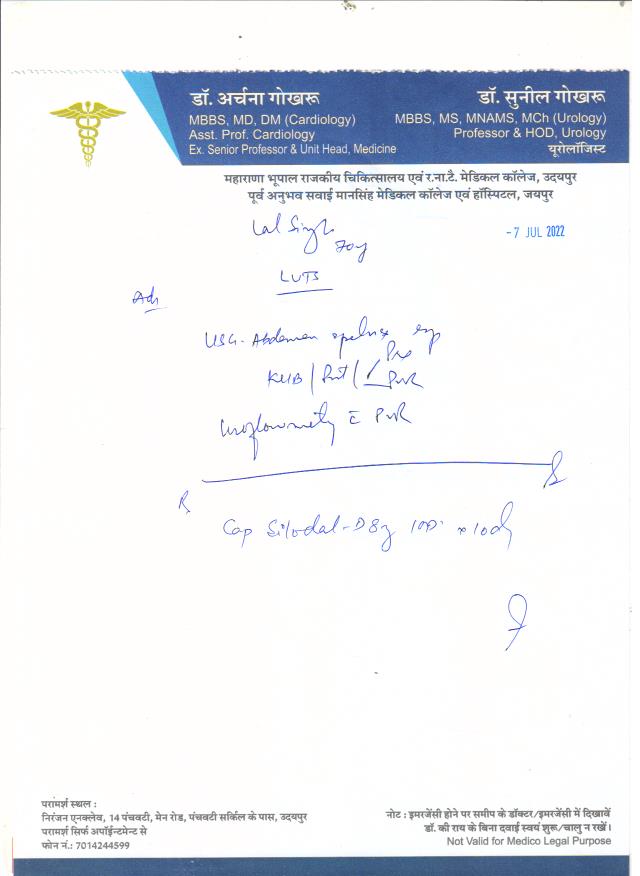 डॉ. अर्चना गोखरू
MBBS, MD, DM (Cardiology)
Asst. Prof. Cardiology
Ex. Senior Professor & Unit Head, Medicine
डॉ. सुनील गोखरू
MBBS, MS, MNAMS, MCh (Urology)
Professor & HOD, Urology
यूरोलॉजिस्ट
महाराणा भूपाल राजकीय चिकित्सालय एवं र.ना.टै. मेडिकल कॉलेज, उदयपुर
पूर्व अनुभव सवाई मानसिंह मेडिकल कॉलेज एवं हॉस्पिटल, जयपुर
Lal Singh
70y
-7 JUL 2022
LUTS
Adv
USG - Abdomen
KUB / Prst / Pre
PVR
Uroflowmetry c̄ PVR
Rx
Cap Silodal-D 8mg 1OD x 10d
परामर्श स्थल :
निरंजन एनक्लेव, 14 पंचवटी, मेन रोड, पंचवटी सर्किल के पास, उदयपुर
परामर्श सिर्फ अपॉईन्टमेन्ट से
फोन नं.: 7014244599
नोट : इमरजेंसी होने पर समीप के डॉक्टर/इमरजेंसी में दिखावें
डॉ. की राय के बिना दवाई स्वयं शुरू/चालु न रखें।
Not Valid for Medico Legal Purpose